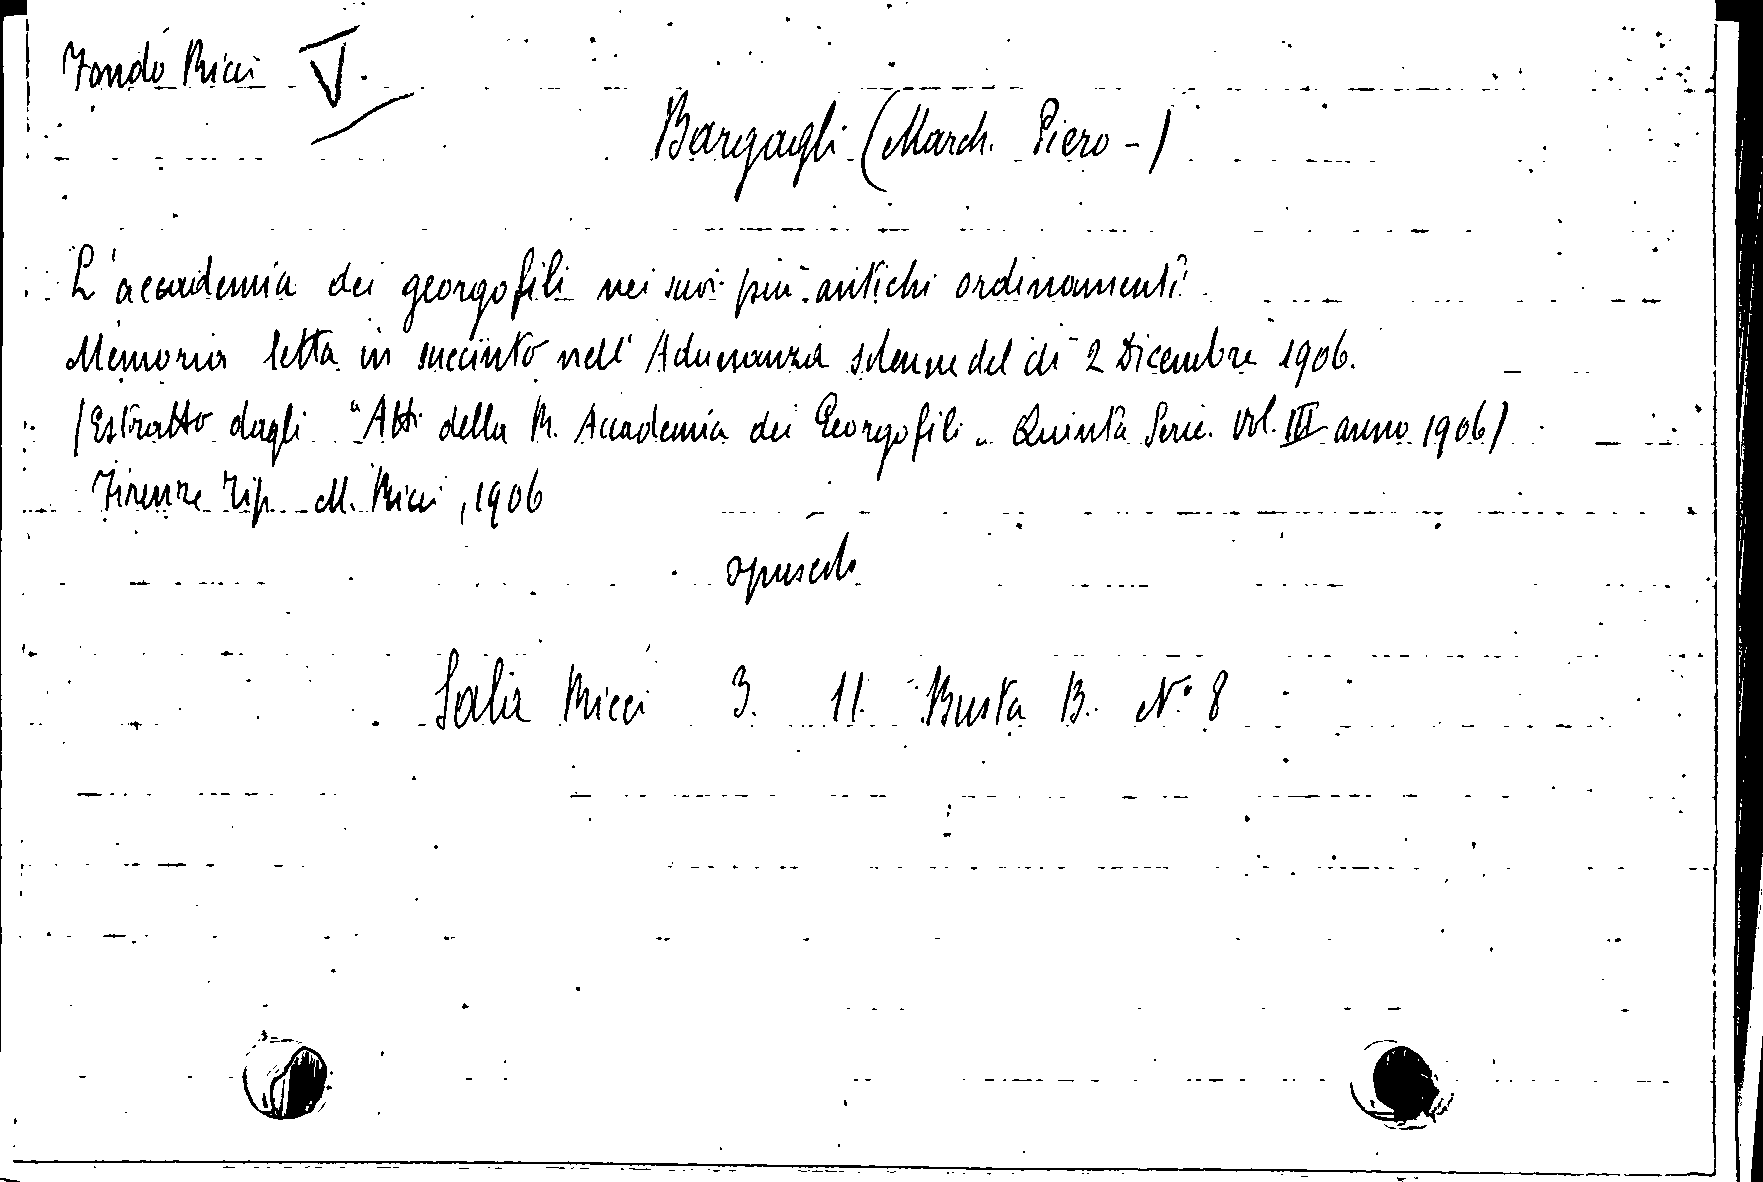 Fondo Ricci V.
Bargagli (March. Piero -)
L'accademia dei georgofili nei suoi più antichi ordinamenti
Memoria letta in succinto nell' Adunanza solenne del dì 2 Dicembre 1906.
(Estratto dagli "Atti della R. Accademia dei Georgofili „ Quinta Serie. Vol. III anno 1906)
Firenze Tip. M. Ricci, 1906
opuscolo
Sala Ricci 3. 11. Busta B. N° 8